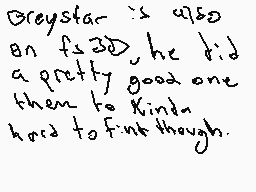 Greystar is also
on fs3D, he did
a pretty good one
then to Kinda
hard to fink though.